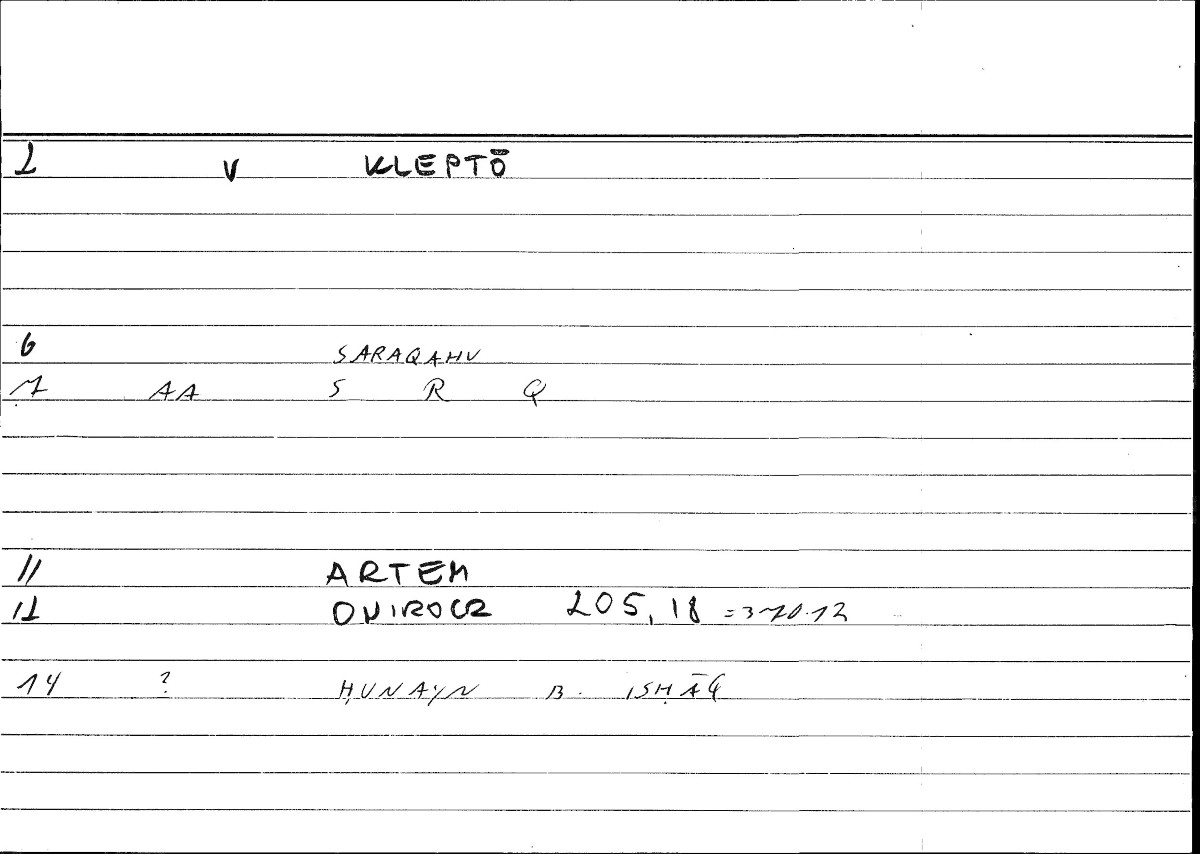 2 V KLEPTŌ
6 SARAQAHU
7 AA S R Q
11 ARTEM
12 ONIROCR 205,18 =370.12
14 ? ḤUNAYN B. ISḤĀQ